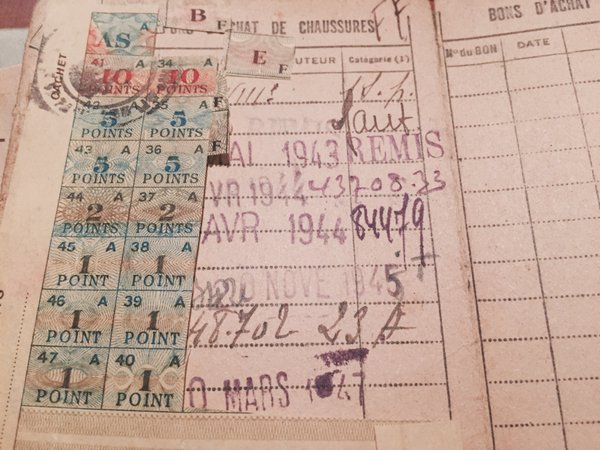 B F
BONS D'ACHAT DE CHAUSSURES
BONS D'ACHAT
E F
AS A
CACHET
UTEUR Catégorie (1)
N° du BON DATE
41 A 34
10 POINTS 10 POINTS
42 A 35 F
5 POINTS 5 POINTS
43 A 36 F
5 POINTS 5 POINTS
AI 1943 REMIS
44 A 37 A
2 POINTS 2 POINTS
VR 1944 43708.33
AVR 1944 84479
45 A 38 A
1 POINT 1 POINT
NOVE 1945
46 A 39 A
1 POINT 1 POINT
48.702 23 A
47 A 40 A
1 POINT 1 POINT
0 MARS 1947